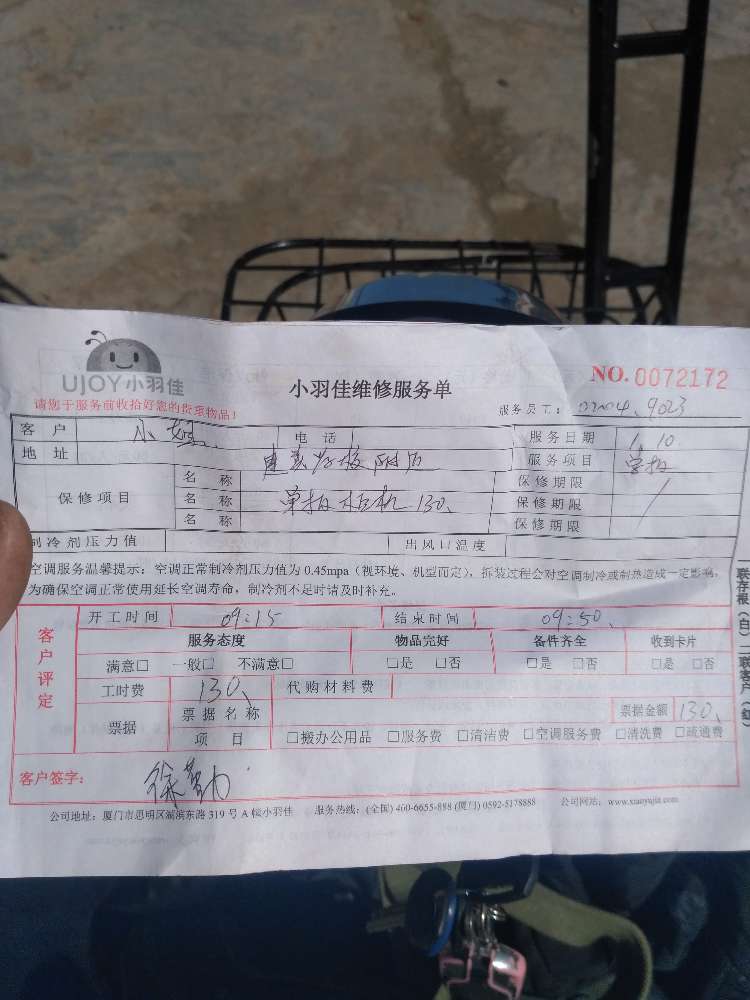 UJOY小羽佳
小羽佳维修服务单
NO. 0072172
请您于服务前收拾好您的贵重物品!
服务员工: 9023
客户 小 电话 服务日期 1.10
地址 附近 服务项目 单拆
保修项目 名称 保修期限
名称 单拍柜机 130、 保修期限
名称 保修期限
制冷剂压力值 出风口温度
空调服务温馨提示: 空调正常制冷剂压力值为 0.45mpa (视环境、机型而定), 拆装过程会对空调制冷或制热造成一定影响,
为确保空调正常使用延长空调寿命, 制冷剂不足时请及时补充。
一联存根(白) 二联客户(红)
客户评定
开工时间 09:15 结束时间 09:50、
服务态度 物品完好 备件齐全 收到卡片
满意□ 一般□ 不满意□ □是 □否 □是 □否 □是 □否
工时费 130、 代购材料费
票据 票据名称 票据金额 130、
项目 □搬办公用品 □服务费 □清洁费 □空调服务费 □清洗费 □疏通费
客户签字: 徐
公司地址: 厦门市思明区湖滨东路 319 号 A 幢小羽佳 服务热线: (全国) 400-6655-888 (厦门) 0592-5178888 公司网站: www.xiaoyujia.com